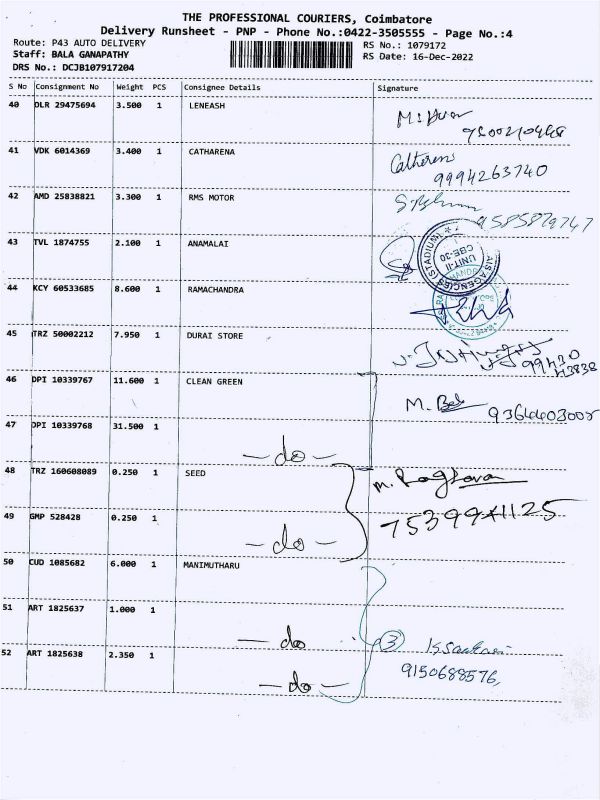 THE PROFESSIONAL COURIERS, Coimbatore
Delivery Runsheet - PNP - Phone No.:0422-3505555 - Page No.:4
Route: P43 AUTO DELIVERY
RS No.: 1079172
Staff: BALA GANAPATHY
RS Date: 16-Dec-2022
DRS No.: DCJB107917204
S No Consignment No Weight PCS Consignee Details Signature
40 DLR 29475694 3.500 1 LENEASH
41 VDK 6014369 3.400 1 CATHARENA
9994263740
42 AMD 25838821 3.300 1 RMS MOTOR
9585879747
43 TVL 1874755 2.100 1 ANAMALAI
AIS AGENCIES STADIUM
UNIT-II
CBE-30
44 KCY 60533685 8.600 1 RAMACHANDRA
45 TRZ 50002212 7.950 1 DURAI STORE
99430
43838
46 DPI 10339767 11.600 1 CLEAN GREEN
M. Bab
47 DPI 10339768 31.500 1
— do —
48 TRZ 160608089 0.250 1 SEED
M. Raghavan
49 GMP 528428 0.250 1
75399 41125
— do —
50 CUD 1085682 6.000 1 MANIMUTHARU
51 ART 1825637 1.000 1
— do
3
52 ART 1825638 2.350 1
9150688576,
— do —